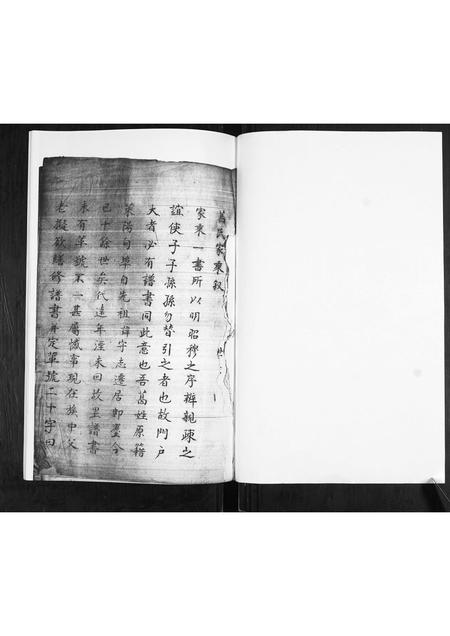 葛氏家乘叙
家乘一書所以明昭穆之序辨親疎之
誼使子子孫孫勿替引之者也故門戶
大者必有譜書同此意也吾葛姓原籍
萊陽句埠自先祖諱守志遷居即墨今
已十餘世矣代遠年湮未回故里譜書
未有輩號不一甚屬憾事現在族中父
老擬欲繕修譜書并定輩號二十字曰